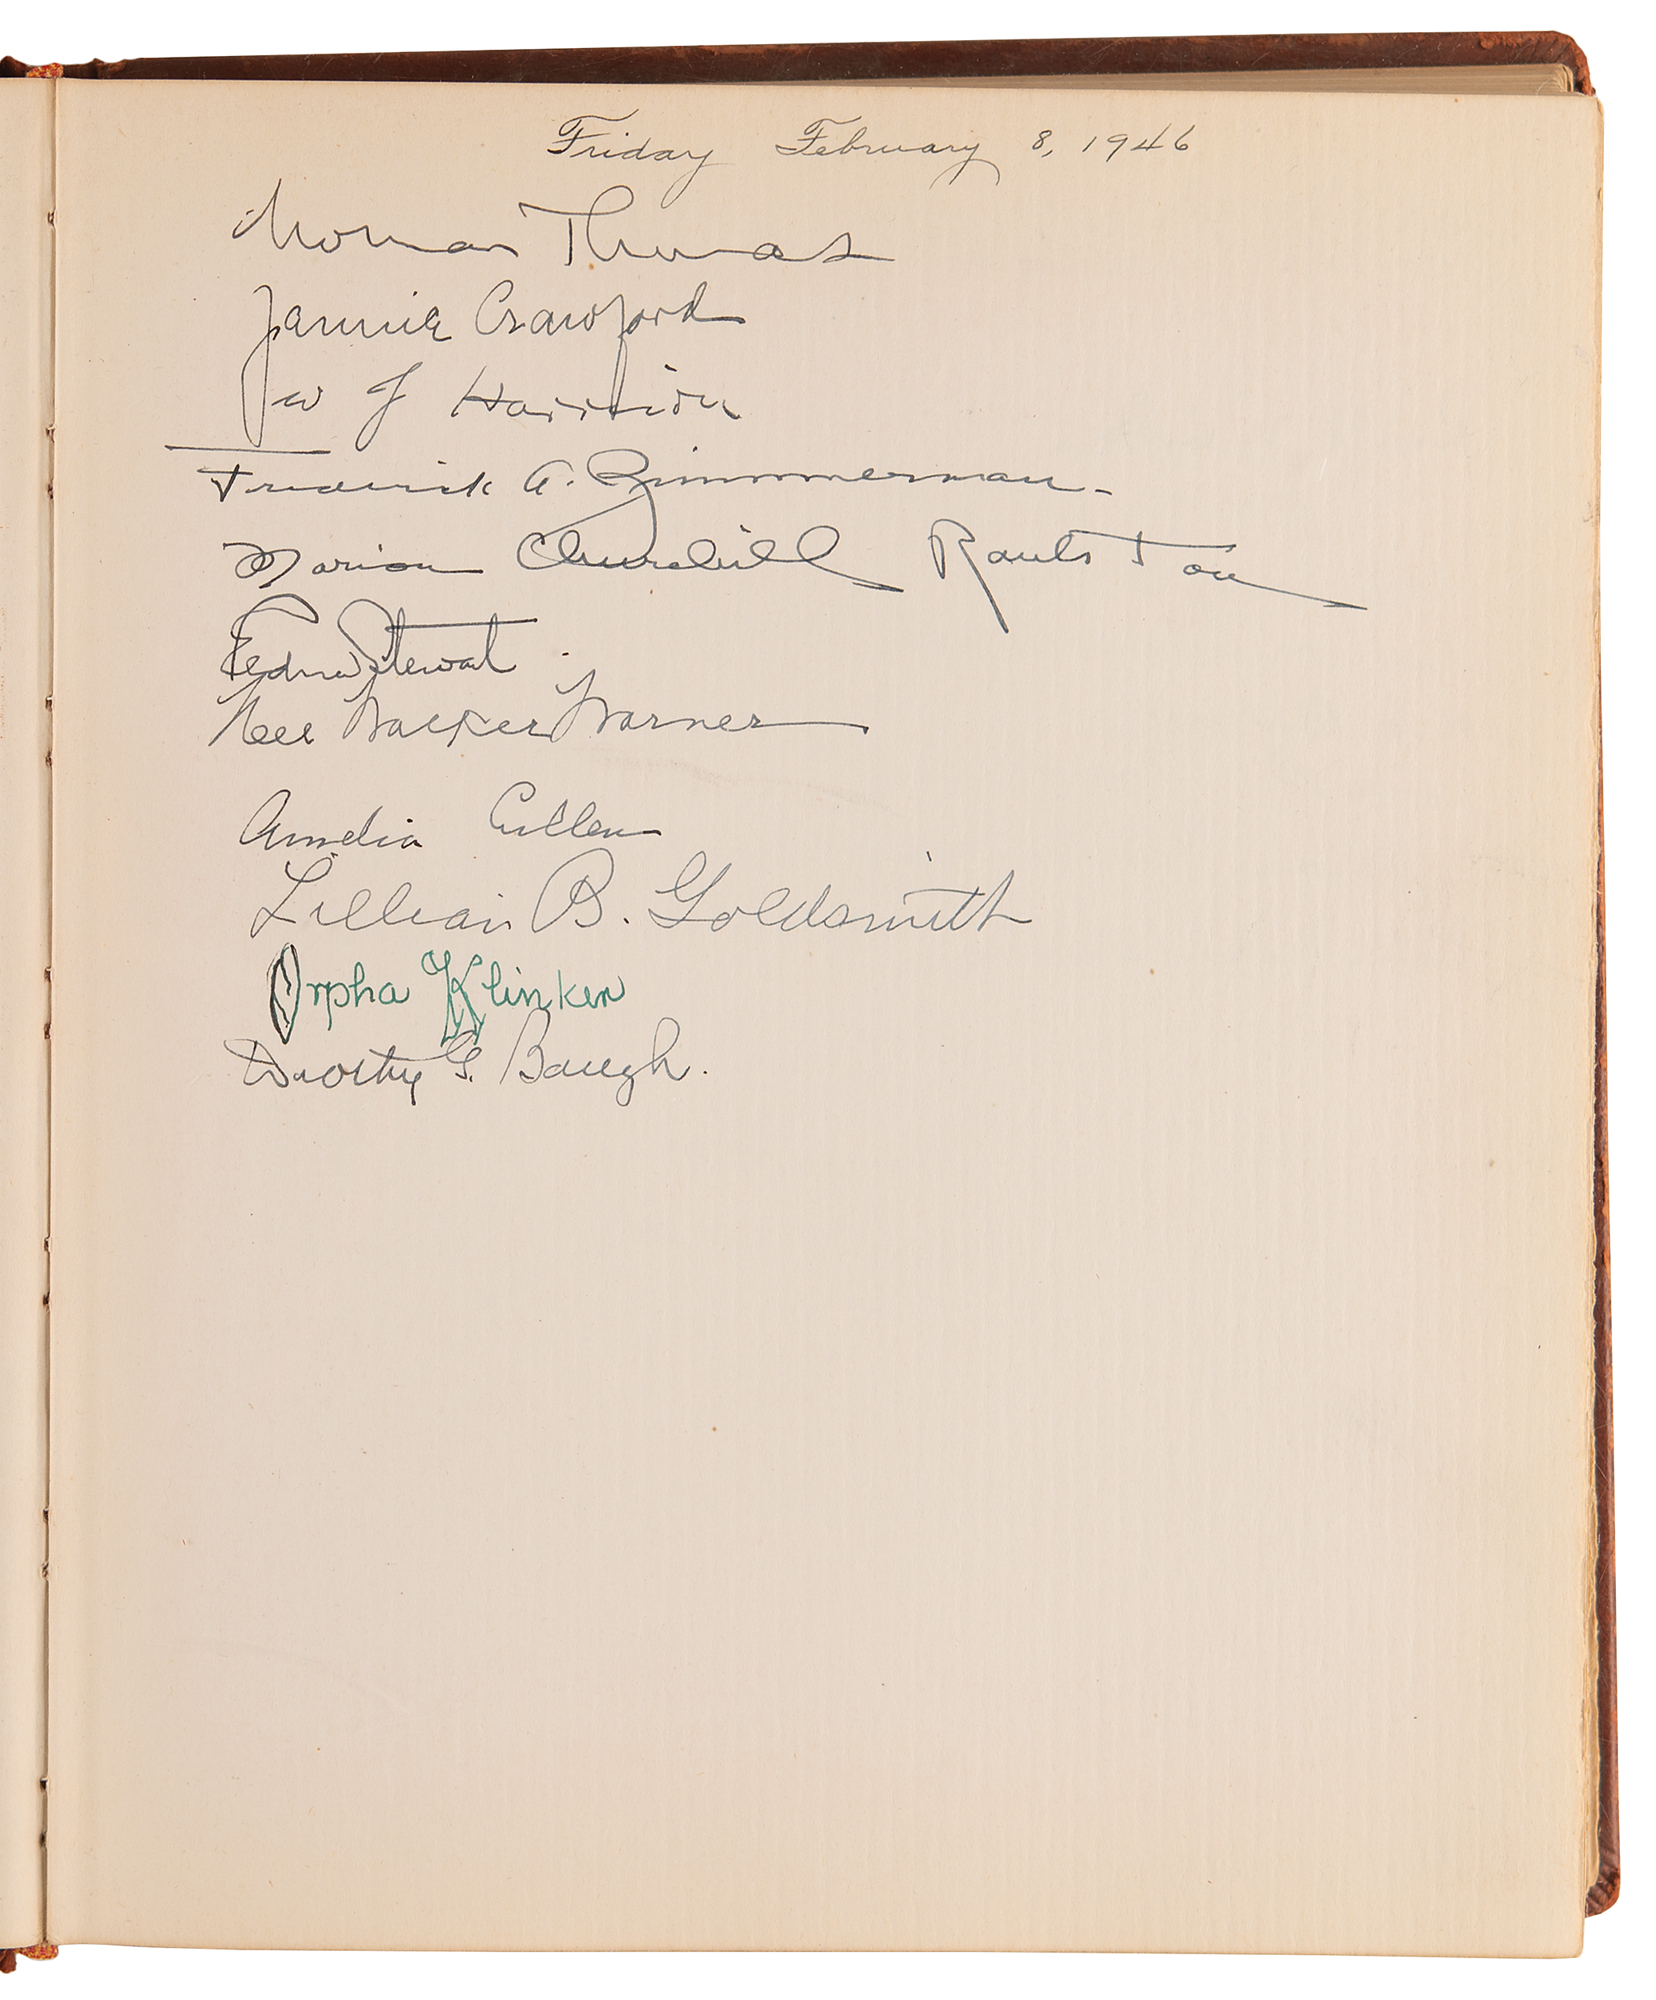 Friday February 8, 1946
Norman Thomas
Jannie Crawford
J W J Harrison
Frederick A. Zimmerman
Marion Churchill Raulston
Edna Stewart
Nell Walker Warner
Amelia Cullen
Lillian B. Goldsmith
Orpha Klinker
Dorothy G. Baugh.